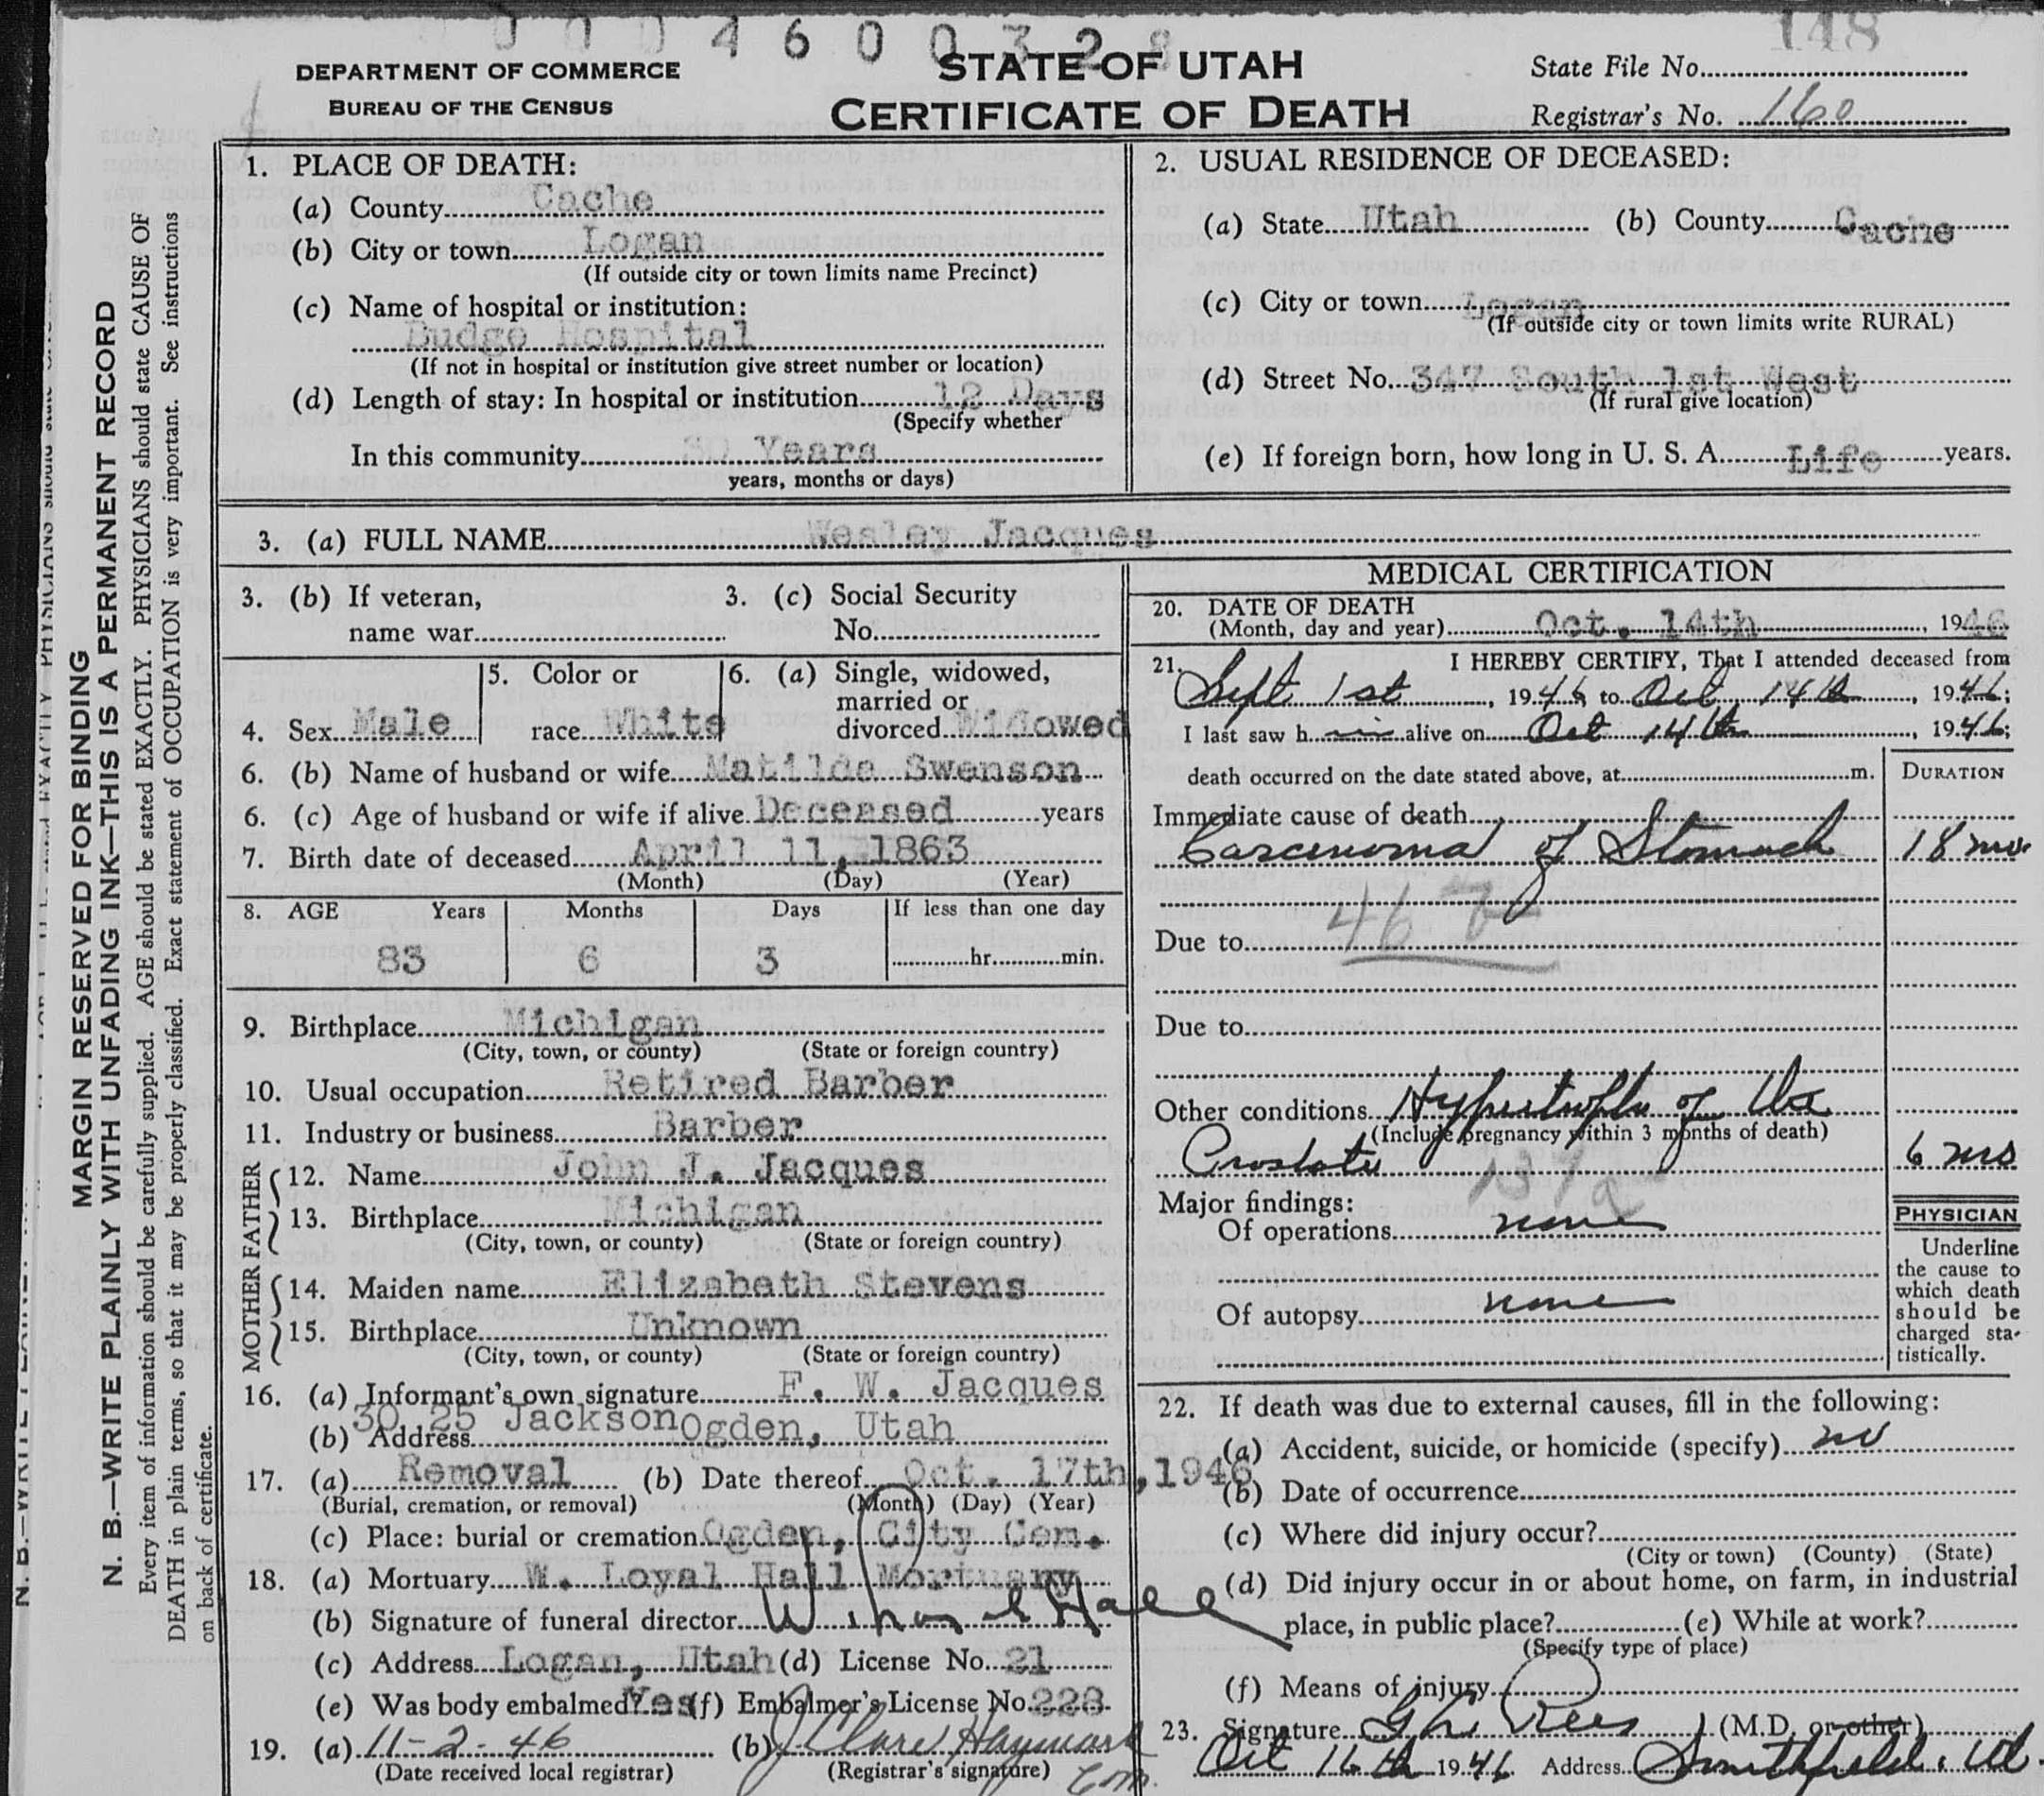 0004600328
148
DEPARTMENT OF COMMERCE
BUREAU OF THE CENSUS
STATE OF UTAH
CERTIFICATE OF DEATH
State File No.
Registrar's No. 160
MARGIN RESERVED FOR BINDING
N. B.—WRITE PLAINLY WITH UNFADING INK—THIS IS A PERMANENT RECORD
Every item of information should be carefully supplied. AGE should be stated EXACTLY. PHYSICIANS should state CAUSE OF
DEATH in plain terms, so that it may be properly classified. Exact statement of OCCUPATION is very important. See instructions
on back of certificate.
1. PLACE OF DEATH:
(a) County Cache
(b) City or town Logan
(If outside city or town limits name Precinct)
(c) Name of hospital or institution:
Budge Hospital
(If not in hospital or institution give street number or location)
(d) Length of stay: In hospital or institution 12 Days
(Specify whether
In this community 30 Years
years, months or days)
2. USUAL RESIDENCE OF DECEASED:
(a) State Utah (b) County Cache
(c) City or town Logan
(If outside city or town limits write RURAL)
(d) Street No. 347 South 1st West
(If rural give location)
(e) If foreign born, how long in U. S. A. Life years.
3. (a) FULL NAME Wesley Jacques
3. (b) If veteran,
name war
3. (c) Social Security
No.
4. Sex Male
5. Color or
race White
6. (a) Single, widowed,
married or
divorced Widowed
6. (b) Name of husband or wife Matilda Swenson
6. (c) Age of husband or wife if alive Deceased years
7. Birth date of deceased April 11, 1863
(Month) (Day) (Year)
8. AGE Years Months Days If less than one day
83 6 3 hr. min.
9. Birthplace Michigan
(City, town, or county) (State or foreign country)
10. Usual occupation Retired Barber
11. Industry or business Barber
FATHER
12. Name John J. Jacques
13. Birthplace Michigan
(City, town, or county) (State or foreign country)
MOTHER
14. Maiden name Elizabeth Stevens
15. Birthplace Unknown
(City, town, or county) (State or foreign country)
16. (a) Informant's own signature F. W. Jacques
(b) Address 30 25 Jackson Ogden, Utah
17. (a) Removal (b) Date thereof Oct. 17th, 1946
(Burial, cremation, or removal) (Month) (Day) (Year)
(c) Place: burial or cremation Ogden, City Cem.
18. (a) Mortuary W. Loyal Hall Mortuary
(b) Signature of funeral director W. Loyal Hall
(c) Address Logan, Utah (d) License No. 21
(e) Was body embalmed? Yes (f) Embalmer's License No. 228
19. (a) 11-2-46 (b)
(Date received local registrar) (Registrar's signature)
MEDICAL CERTIFICATION
20. DATE OF DEATH
(Month, day and year) Oct. 14th, 1946
21. I HEREBY CERTIFY, That I attended deceased from
Sept 1st, 1946 to Oct 14th, 1946;
I last saw h im alive on Oct 14th, 1946;
death occurred on the date stated above, at m.
DURATION
Immediate cause of death
Carcinoma of Stomach 18 mo
46 b
Due to
Due to
Other conditions Hypertrophy of the
(Include pregnancy within 3 months of death)
Prostate 6 mos
137a
Major findings:
Of operations none
Of autopsy none
PHYSICIAN
Underline
the cause to
which death
should be
charged sta-
tistically.
22. If death was due to external causes, fill in the following:
(a) Accident, suicide, or homicide (specify) no
(b) Date of occurrence
(c) Where did injury occur?
(City or town) (County) (State)
(d) Did injury occur in or about home, on farm, in industrial
place, in public place? (e) While at work?
(Specify type of place)
(f) Means of injury
23. Signature Rees (M.D. or other)
Oct 16th 1946 Address Smithfield, Ut.